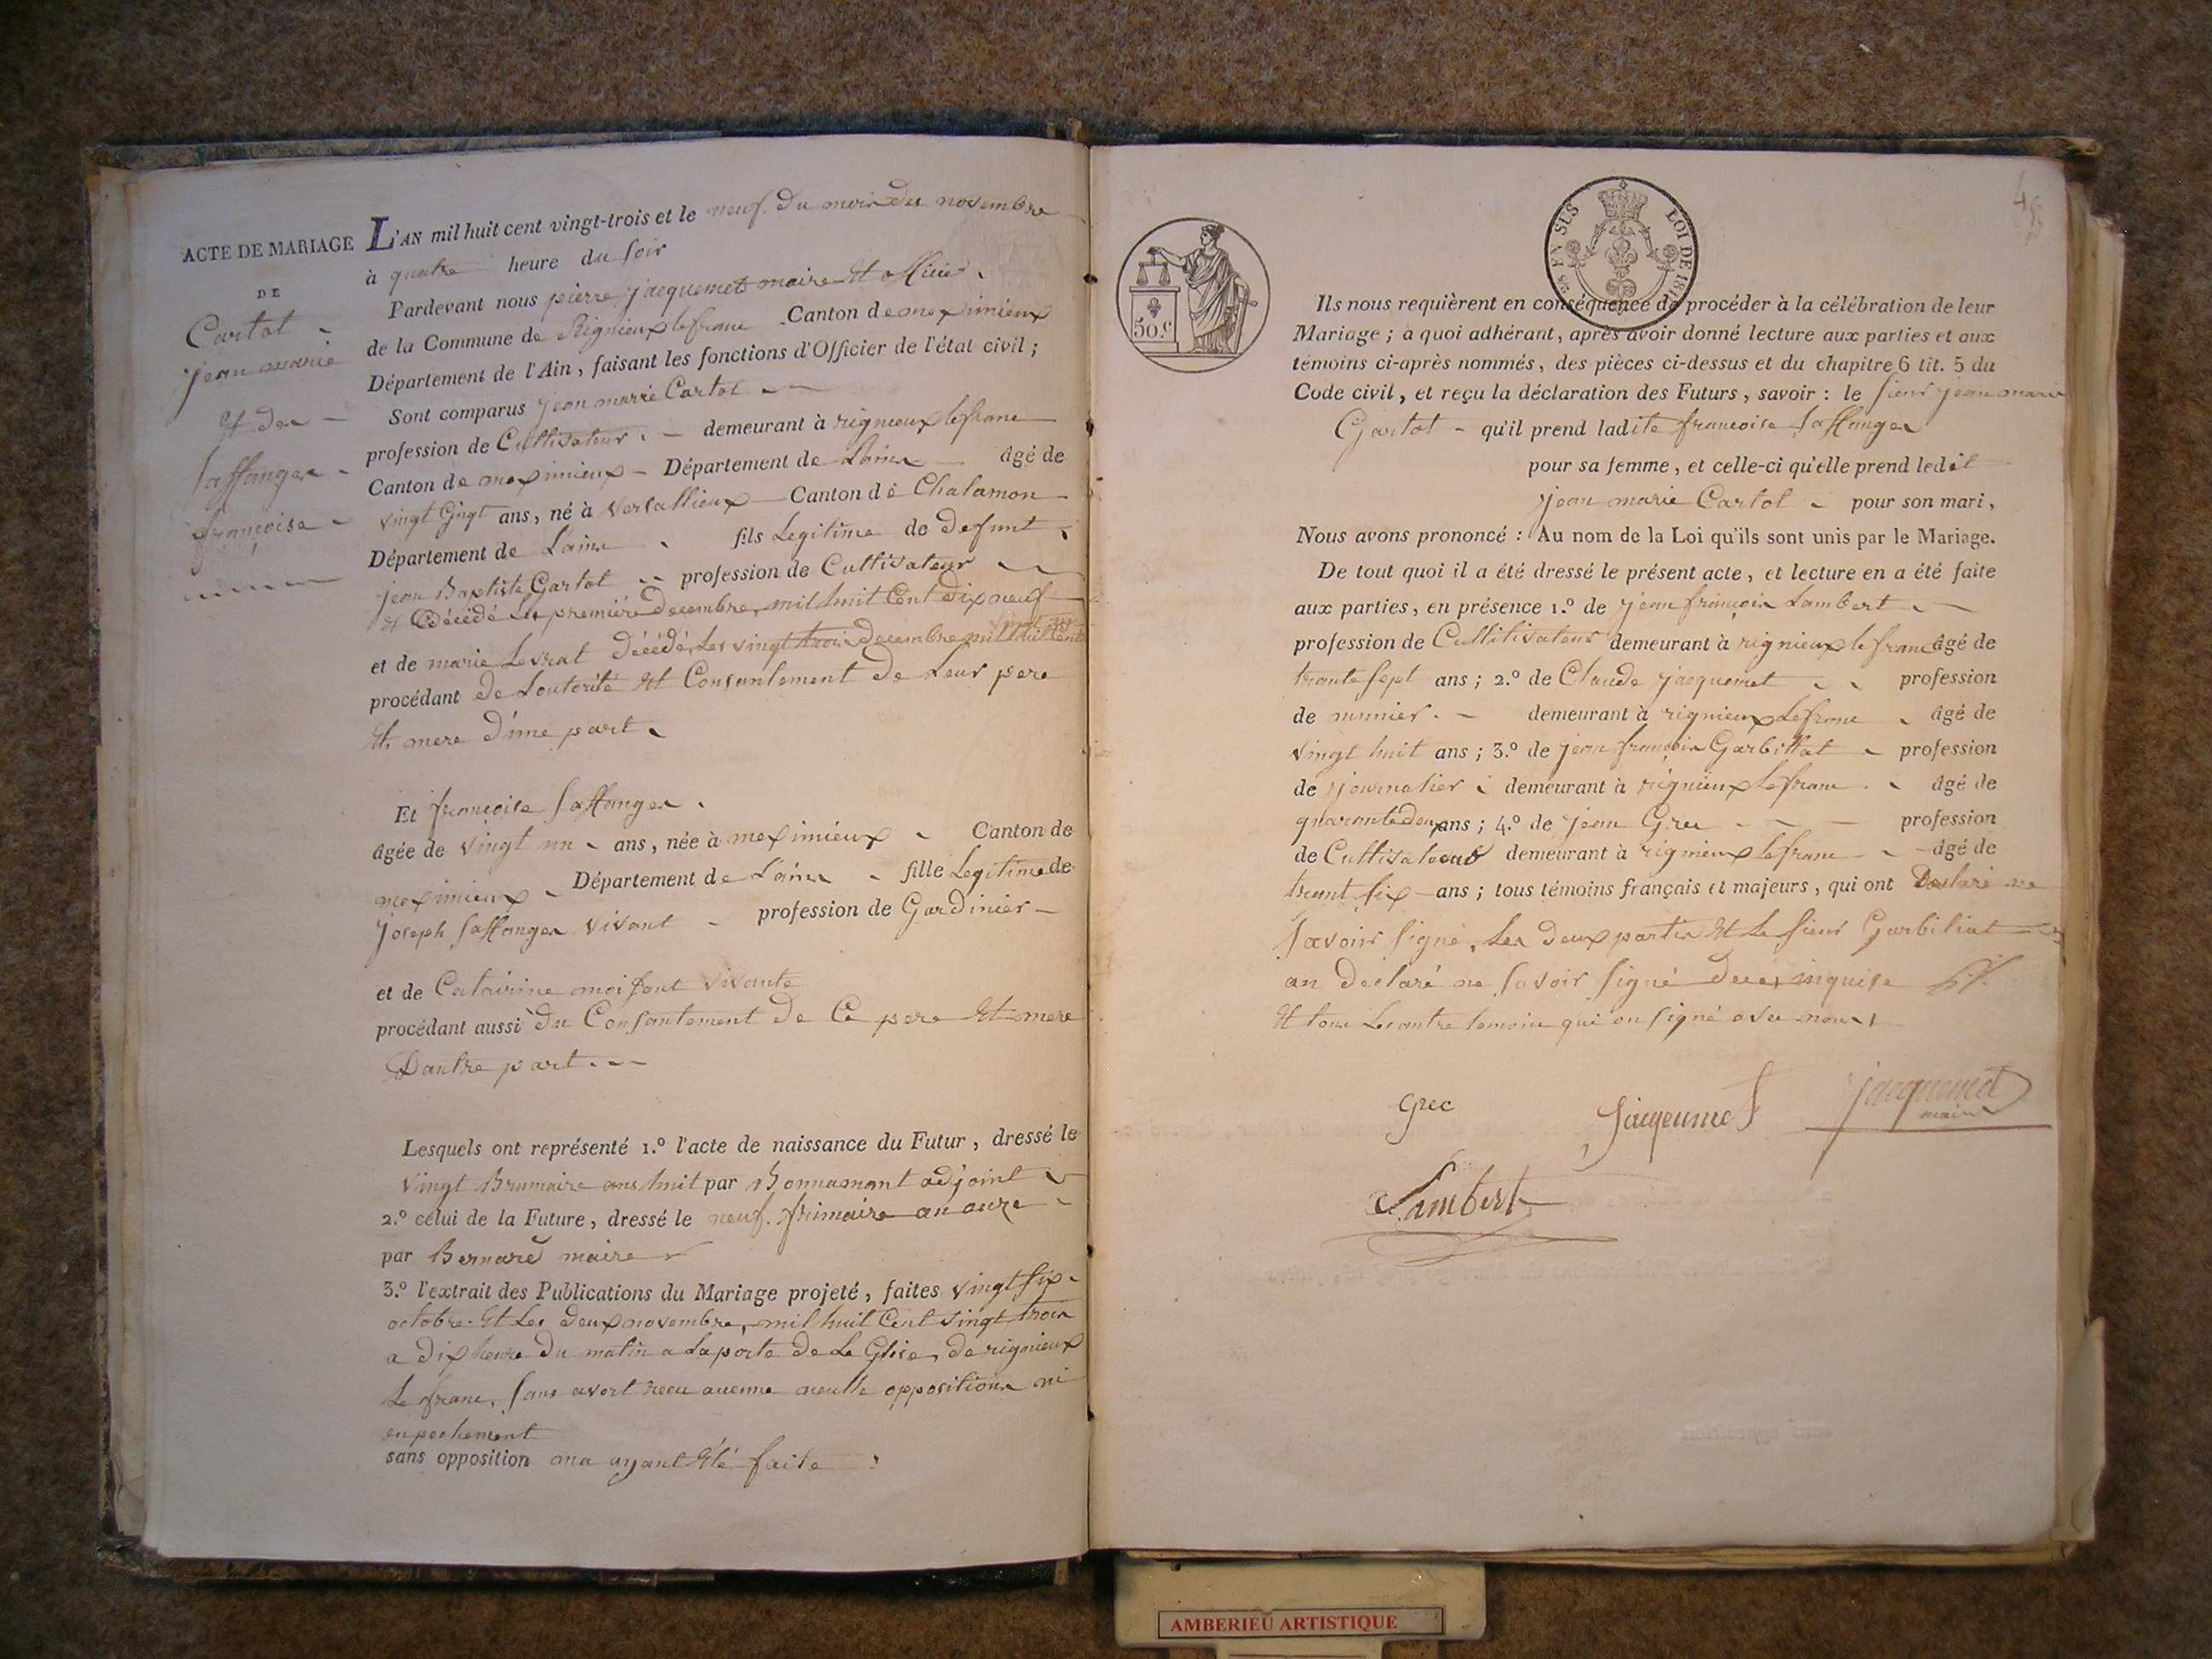 ACTE DE MARIAGE
DE
Cartot
jean marie
Et de
francoise
L'AN mil huit cent vingt-trois et le neuf du mois des novembre
à quatre heure du soir
Pardevant nous pierre jacquemet maire Et officier
de la Commune de Rignieux lefranc Canton de meximieux
Département de l'Ain, faisant les fonctions d'Officier de l'état civil ;
Sont comparus jean marie Cartot
profession de Cultivateur demeurant à rignieux lefranc
Canton de meximieux Département de Lain âgé de
vingt ans, né à Versallieux Canton de Chalamon
Département de Lain fils Legitime de defunt
jean Baptiste Cartot profession de Cultivateur
décédé Les premiére decembre mil huit Cent dix neuf
et de marie Levrat décédé Les vingt trois decembre mil huit Cent
procédant de Loutorité Et Consantement de Leur pere
Et mere d'une part
Et francoise
âgée de vingt un ans, née à meximieux Canton de
meximieux Département de Lain fille Legitime de
joseph vivant profession de Gardinier
et de Catairine vivante
procédant aussi du Consantement de Ce pere Et mere
Dautre part
Lesquels ont représenté 1.º l'acte de naissance du Futur, dressé le
vingt Brumaire ans huit par Bonnamant adjoint
2.º celui de la Future, dressé le neuf frimaire an onze
par Bernard maire
3.º l'extrait des Publications du Mariage projeté, faites vingt six
octobre Et Les deux novembre mil huit Cent vingt trois
a dix heure du matin a Laporte de Le Glise de rignieux
Le franc, sans avort recu aucune neulle opposition ni
enpechement
sans opposition ayant Eté faite
EN SUS LOI DE
50.c
Ils nous requièrent en conséquence de procéder à la célébration de leur
Mariage ; à quoi adhérant, après avoir donné lecture aux parties et aux
témoins ci-après nommés, des pièces ci-dessus et du chapitre 6 tit. 5 du
Code civil, et reçu la déclaration des Futurs, savoir : le sieur jean marie
Cartot qu'il prend ladite francoise
pour sa femme, et celle-ci qu'elle prend ledit
jean marie Cartot pour son mari,
Nous avons prononcé : Au nom de la Loi qu'ils sont unis par le Mariage.
De tout quoi il a été dressé le présent acte, et lecture en a été faite
aux parties, en présence 1.º de jean francois Lambert
profession de Cultitivateur demeurant à rignieux le franc âgé de
trante sept ans ; 2.º de Claude jacquemet profession
de munier demeurant à rignieux Lefranc âgé de
vingt huit ans ; 3.º de jean francois Garbillat profession
de journalier demeurant à rignieux Lefranc âgé de
quarante deux ans ; 4.º de jean Grec profession
de Cultivateur demeurant à rignieux Lefranc âgé de
trant six ans ; tous témoins français et majeurs, qui ont Declaré ne
savoir signé, Les deux partie Et Le sieur Garbiliat
an declaré ne savoir signé inquise
Et tous Les autre temoins qui on signé avec nous
Grec
jacquemet
maire
Lambert
AMBERIEU ARTISTIQUE